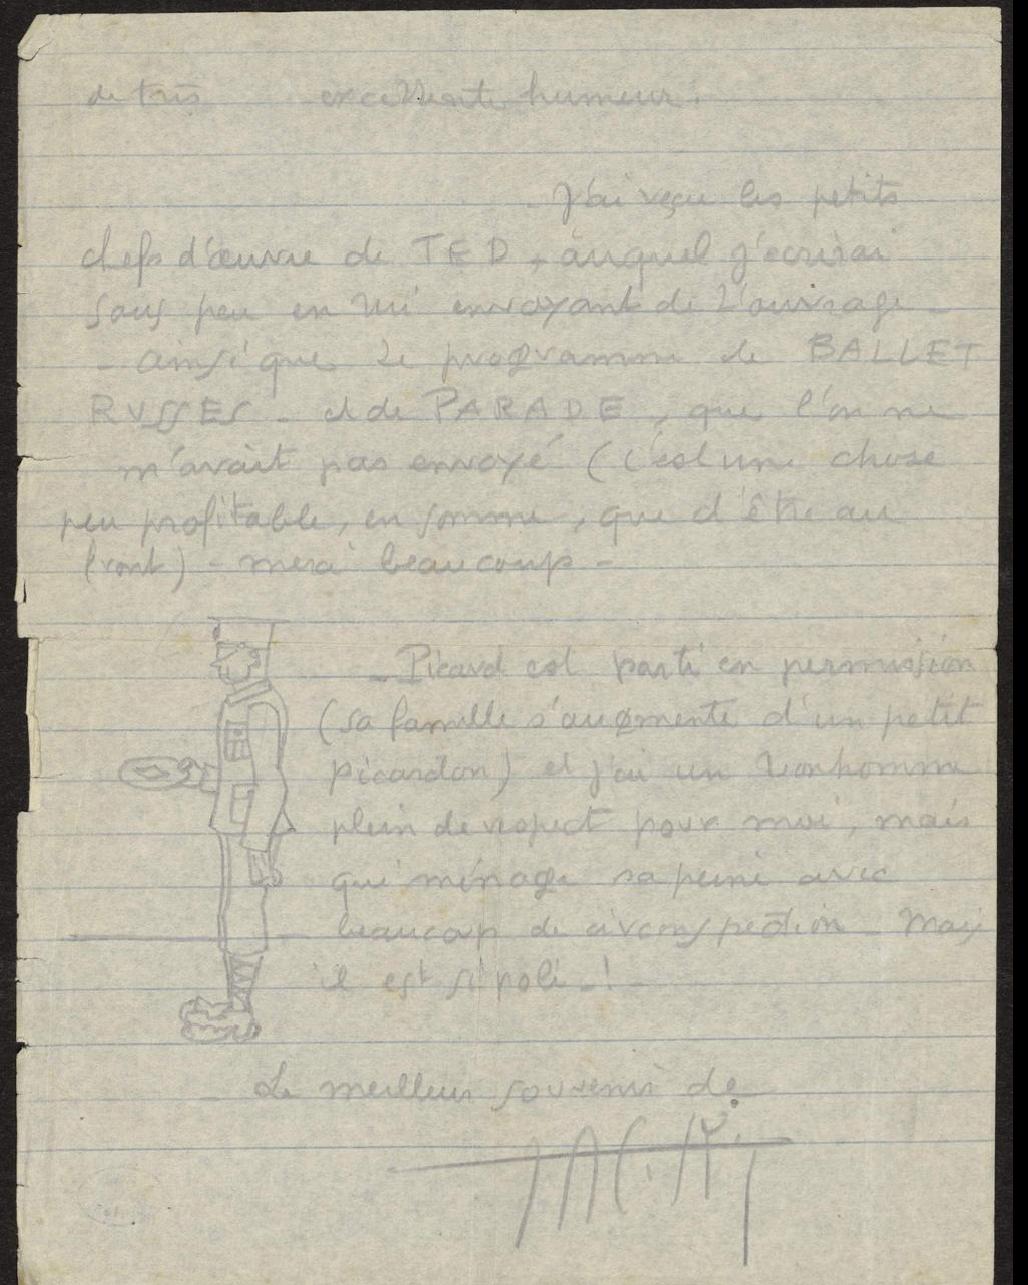 de très excellente humeur.
J'ai reçu les petits
chefs d'œuvre de TED, auquel j'écrirai
sous peu en lui envoyant de l'ouvrage -
- ainsi que le programme de BALLET
RUSSES - et de PARADE, que l'on ne
m'avait pas envoyé (c'est une chose
peu profitable, en somme, que d'être au
front) - merci beaucoup -
- Picard est parti en permission
(sa famille s'augmente d'un petit
picardon) et j'ai un bonhomme
plein de respect pour moi, mais
qui ménage sa peine avec
beaucoup de circonspection - Mais
il est si poli - ! -
- Le meilleur souvenir de